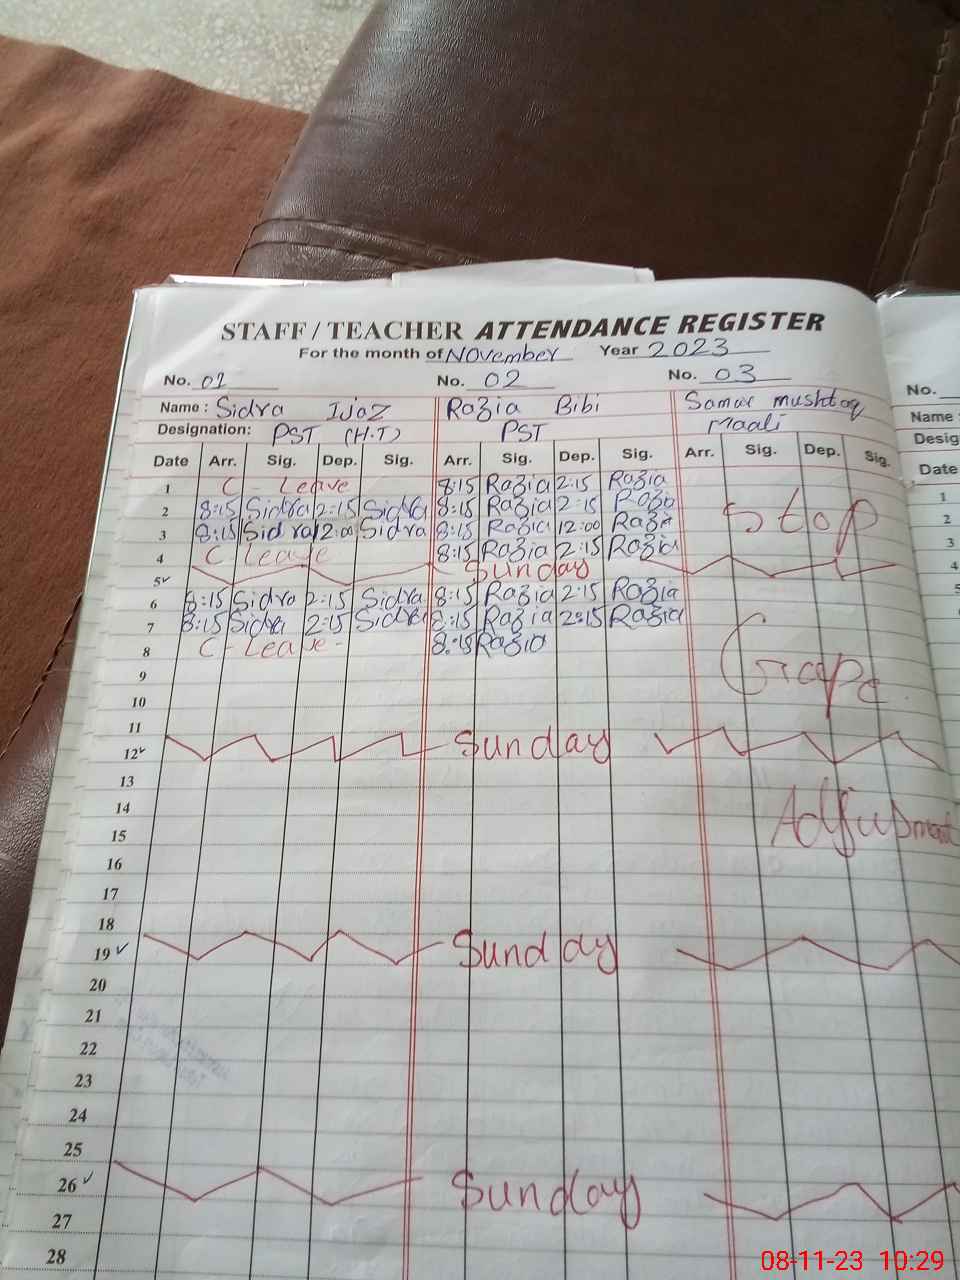 STAFF / TEACHER ATTENDANCE REGISTER
For the month of November Year 2023
No. 01 No. 02 No. 03 No.
Name : Sidra Ijaz Razia Bibi Samar mushtaq Name
Designation: PST (H.T) PST Maali Desig
Date Arr. Sig. Dep. Sig. Arr. Sig. Dep. Sig. Arr. Sig. Dep. Sig. Date
1 C Leave 8:15 Razia 2:15 Razia 1
2 8:15 Sidra 2:15 Sidra 8:15 Razia 2:15 Razia Stop 2
3 8:15 Sidra 12:00 Sidra 8:15 Razia 12:00 Razia 3
4 C Leave 8:15 Razia 2:15 Razia 4
5 Sunday 5
6 8:15 Sidra 2:15 Sidra 8:15 Razia 2:15 Razia 6
7 8:15 Sidra 2:15 Sidra 8:15 Razia 2:15 Razia
8 C - Leave - 8:15 Razia
9 Grape
10
11
12 Sunday
13
14 Adjusment
15
16
17
18
19 Sunday
20
21
22
23
24
25
26 Sunday
27
28
08-11-23 10:29